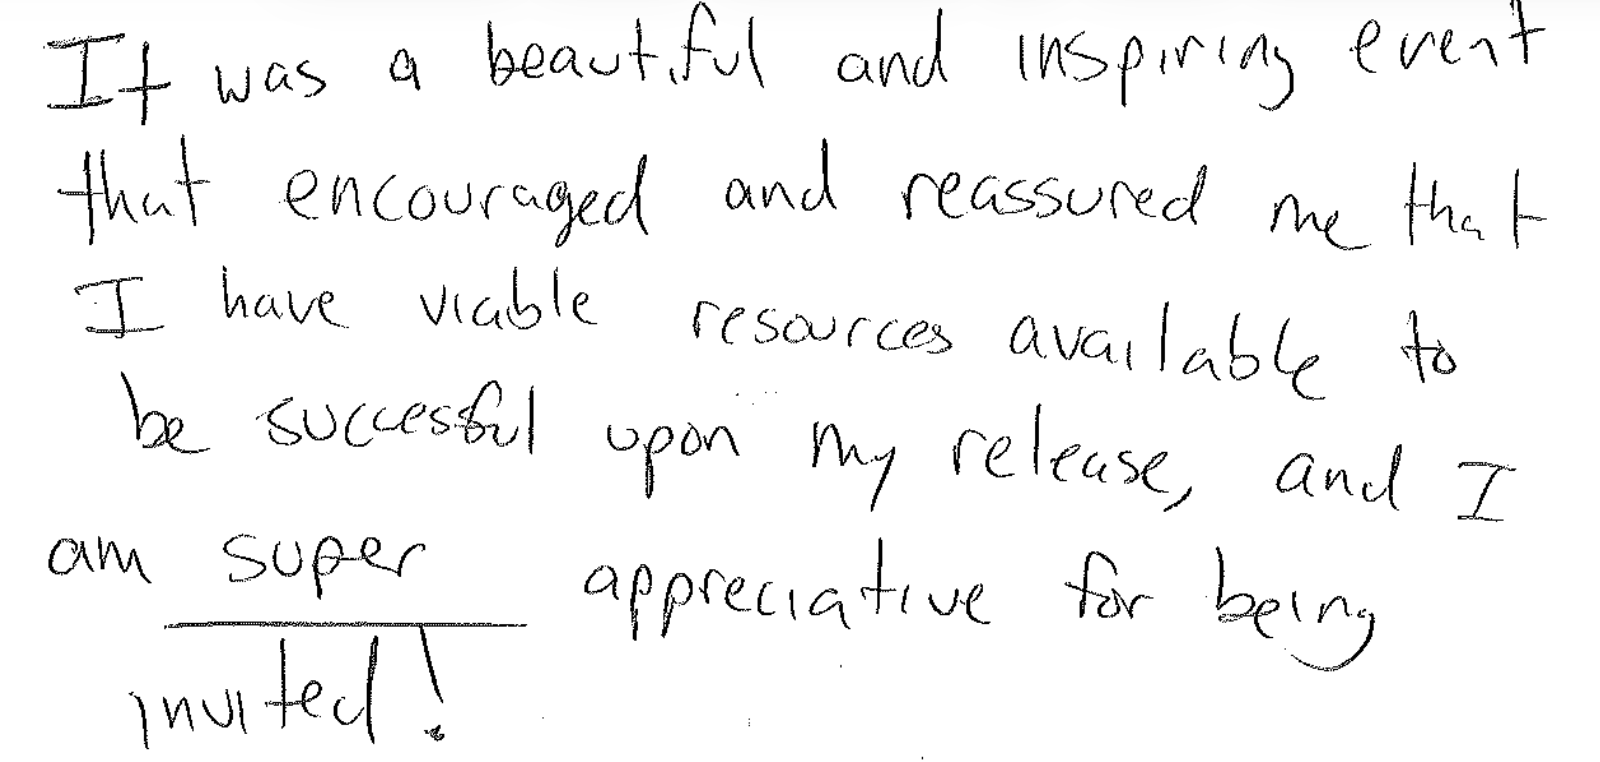 It was a beautiful and inspiring event
that encouraged and reassured me that
I have viable resources available to
be successful upon my release, and I
am super appreciative for being
invited!